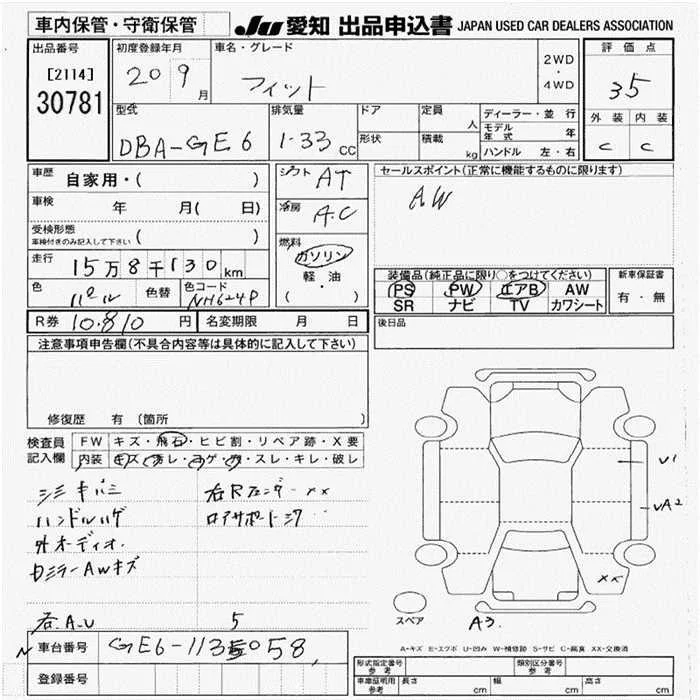 車内保管・守衛保管
JU 愛知 出品申込書 JAPAN USED CAR DEALERS ASSOCIATION
出品番号
[2114]
30781
初度登録年月
20 9月
車名・グレード
フィット
2WD
・
4WD
評価点
35
外装 内装
C C
型式
DBA-GE6
排気量
1.33 CC
ドア
形状
定員 人
積載 kg
ディーラー・並行
モデル年式 年
ハンドル 左・右
車歴 自家用・( )
車検 年 月( 日)
受検形態
車検付きのみ記入して下さい ( )
走行 15万8千130km
色 色替 色コード NH624P
シフト AT
冷房 AC
燃料
ガソリン
軽・油
( )
セールスポイント(正常に機能するものに限ります)
AW
装備品(純正品に限り○をつけてください)
PS PW エアB AW
SR ナビ TV カワシート
新車保証書
有・無
R券 10,810円 名変期限 月 日
後日品
注意事項申告欄(不具合内容等は具体的に記入して下さい)
修復歴 有 (箇所
検査員記入欄
FW キズ・飛石・ヒビ割・リペア跡・X要
内装 キズ・汚レ・コゲ・穴・スレ・キレ・破レ
シミ キバミ
ハンドルハゲ
外オーディオ.
ドミラーAWキズ
右Rフェンダー XX
ロアサポートミク
右A.U 5
U1
UA2
XX
A3.
スペア
A-キズ E-エクボ U-凹み W-補修跡 S-サビ C-腐食 XX-交換済
車台番号 GE6-1135058
登録番号
形式指定番号 参考
類別区分番号 参考
車庫証明用 参考 長さ cm 幅 cm 高さ cm